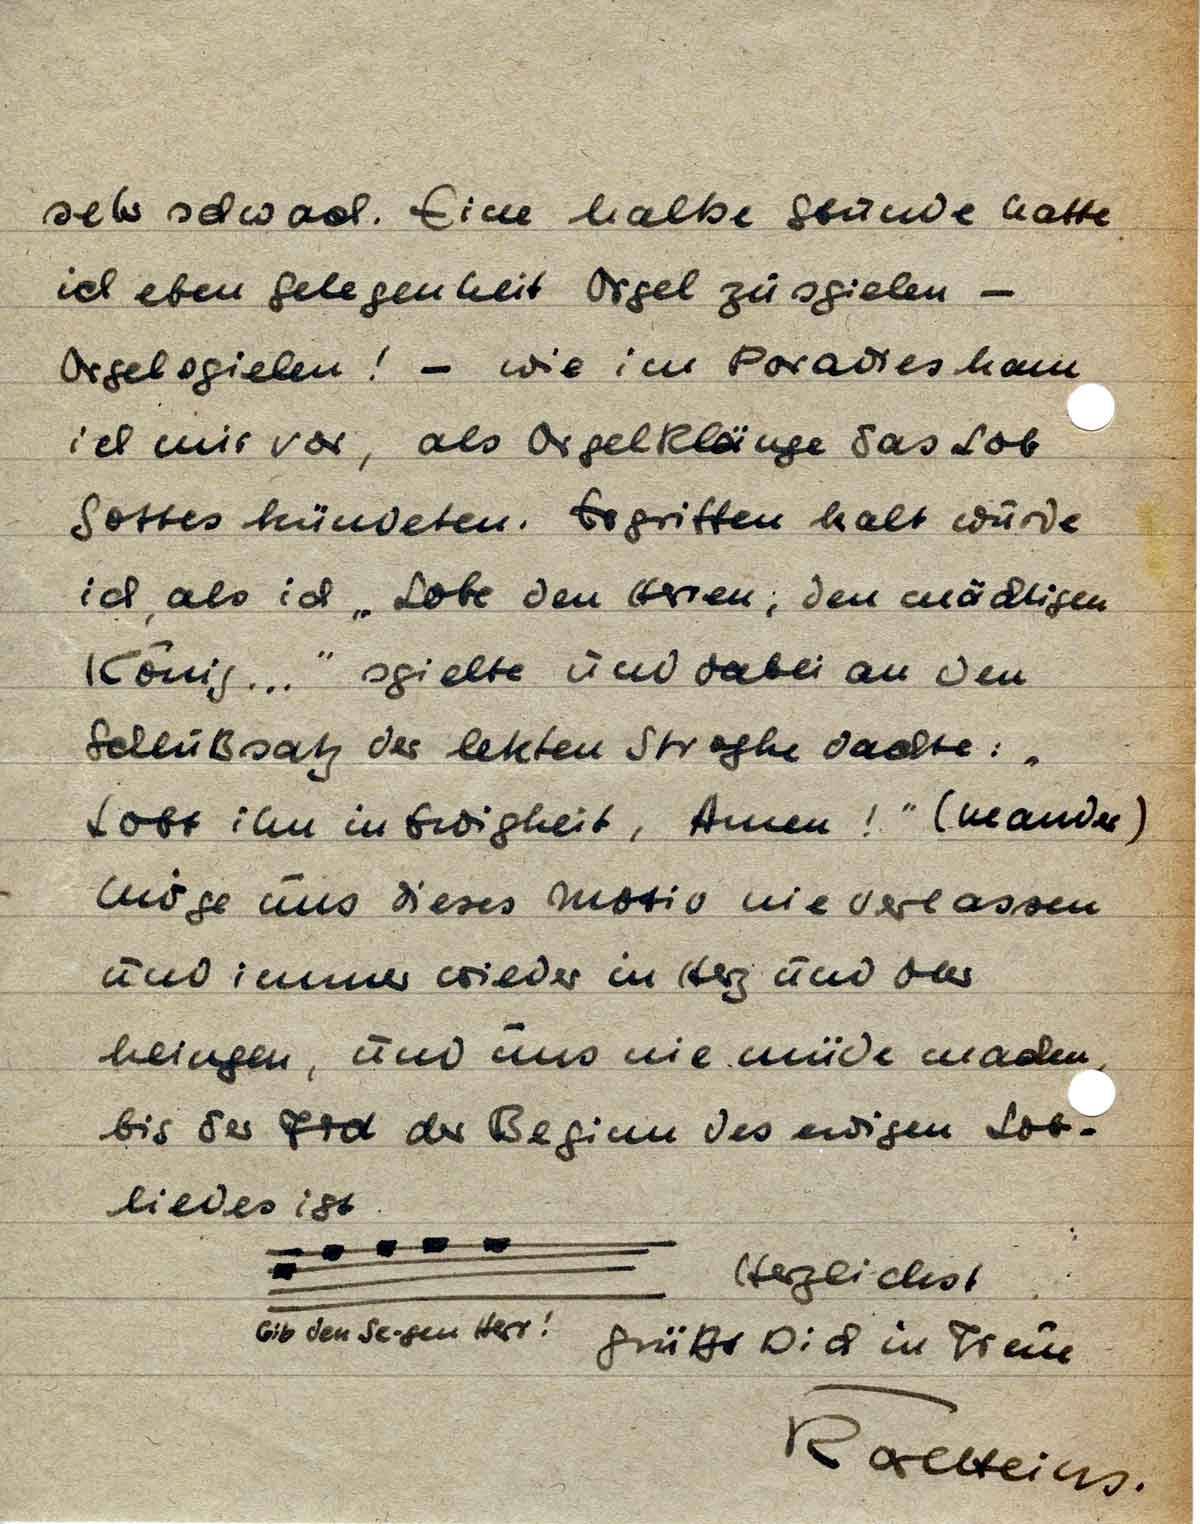 sehr schwach. Eine halbe Stunde hatte
ich eben Gelegenheit Orgel zu spielen –
Orgelspielen! – wie im Paradies kam
ich mir vor, als Orgelklänge das Lob
Gottes kündeten. Ergriffen halt wurde
ich, als ich „Lobe den Herren, den mächtigen
König..." spielte und dabei an den
Schlußsatz der letzten Strophe dachte: „
Lobt ihn in Ewigkeit, Amen!" (Neander)
Möge uns dieses Motiv nie verlassen
und immer wieder in Herz und Ohr
klingen, und uns nie müde machen,
bis der Tod der Beginn des ewigen Lob-
liedes ist.
Gib den Se-gen Herr!
Herzlichst
grüßt Dich in Treue
Karlheinz.